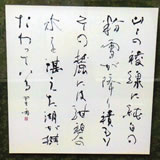 山の稜線に純白の
粉雪が降り積もり
その麓には紺碧の
水を湛えた湖が横
たわっている